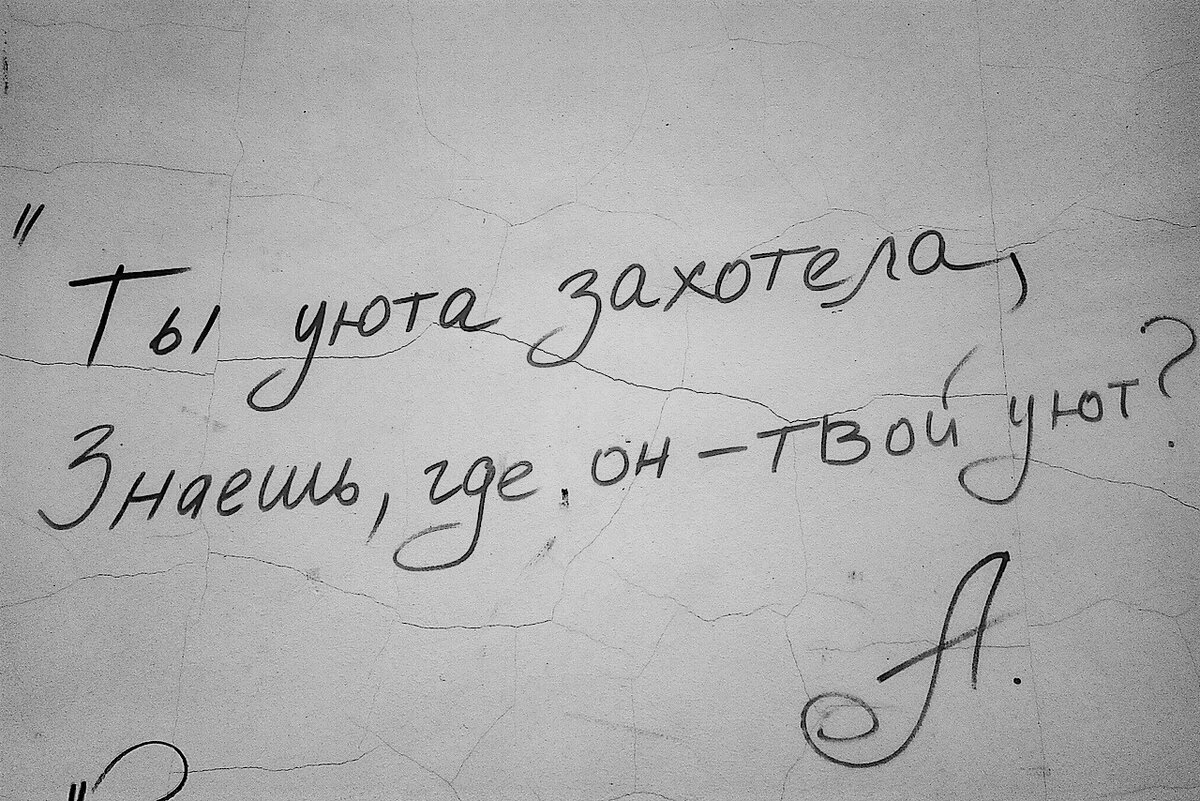 "Ты уюта захотела,
Знаешь, где он – твой уют?
А.
"